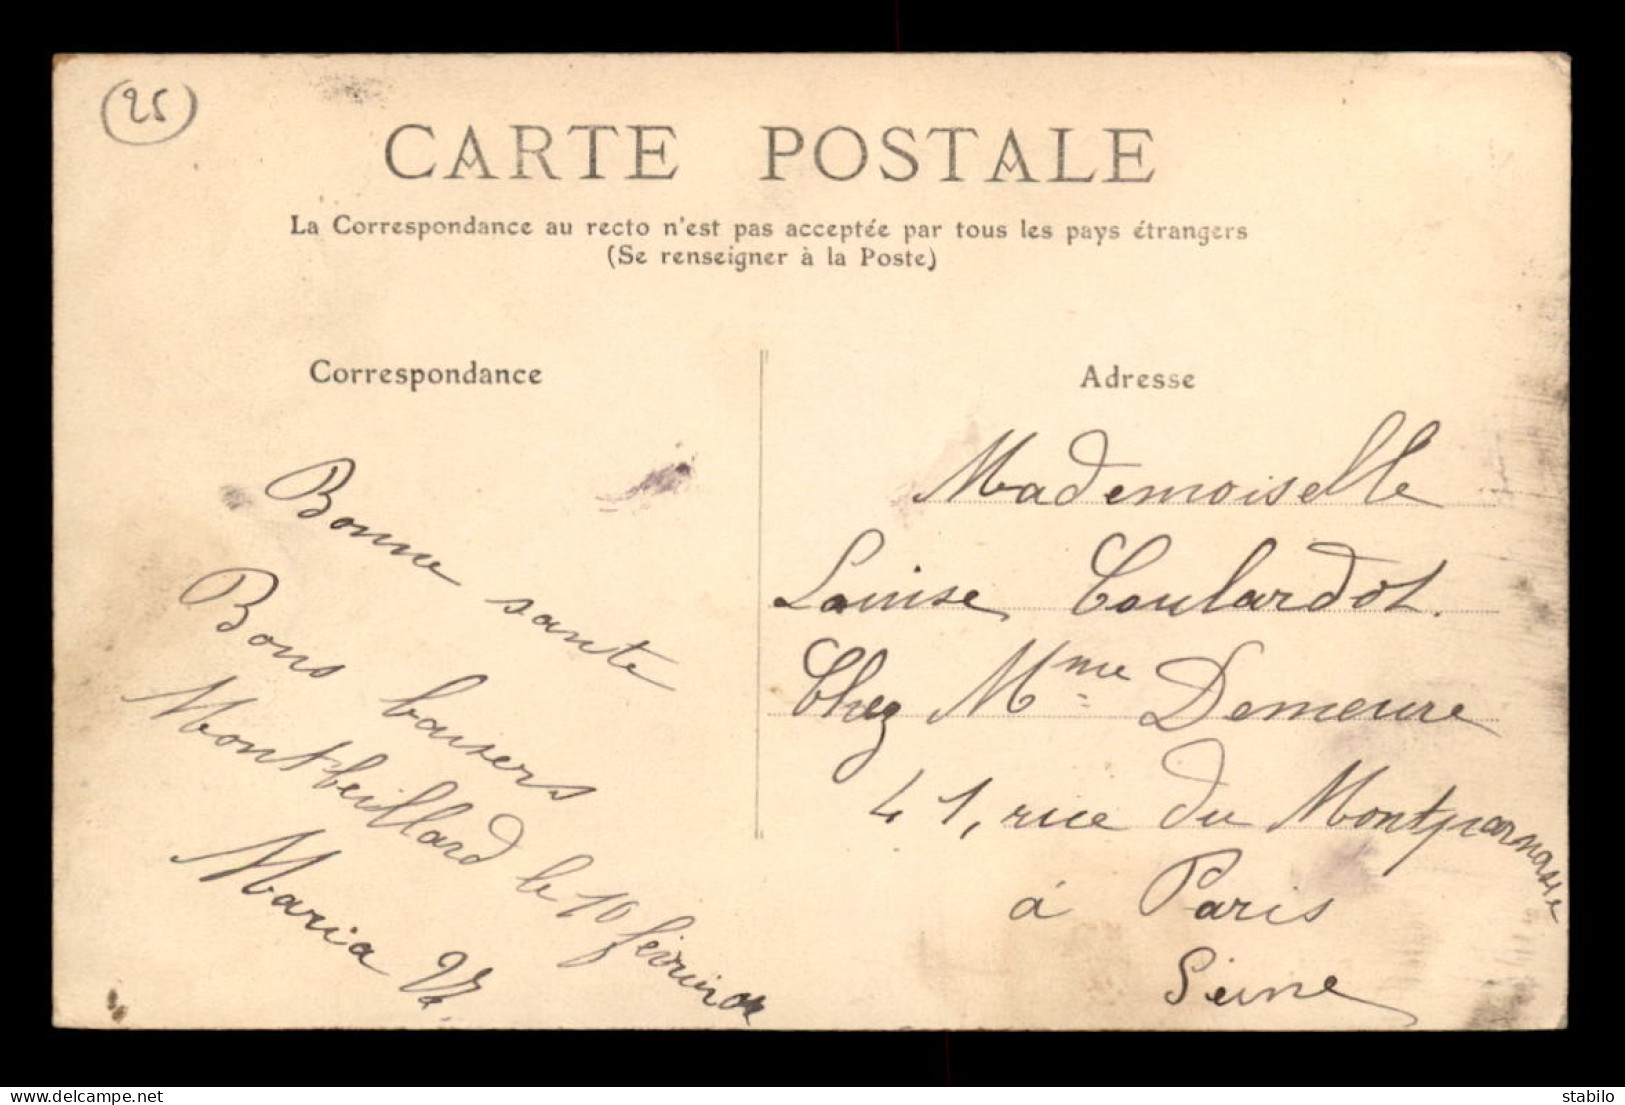 25
CARTE POSTALE
La Correspondance au recto n'est pas acceptée par tous les pays étrangers
(Se renseigner à la Poste)
Correspondance
Bonne sante
Bons baisers
Montbeillard le 10 février
Maria
Adresse
Mademoiselle
Louise Coulardot.
Chez Mme Demeure
41, rue du Montparnasse
à Paris
Seine
delcampe.net
stabilo